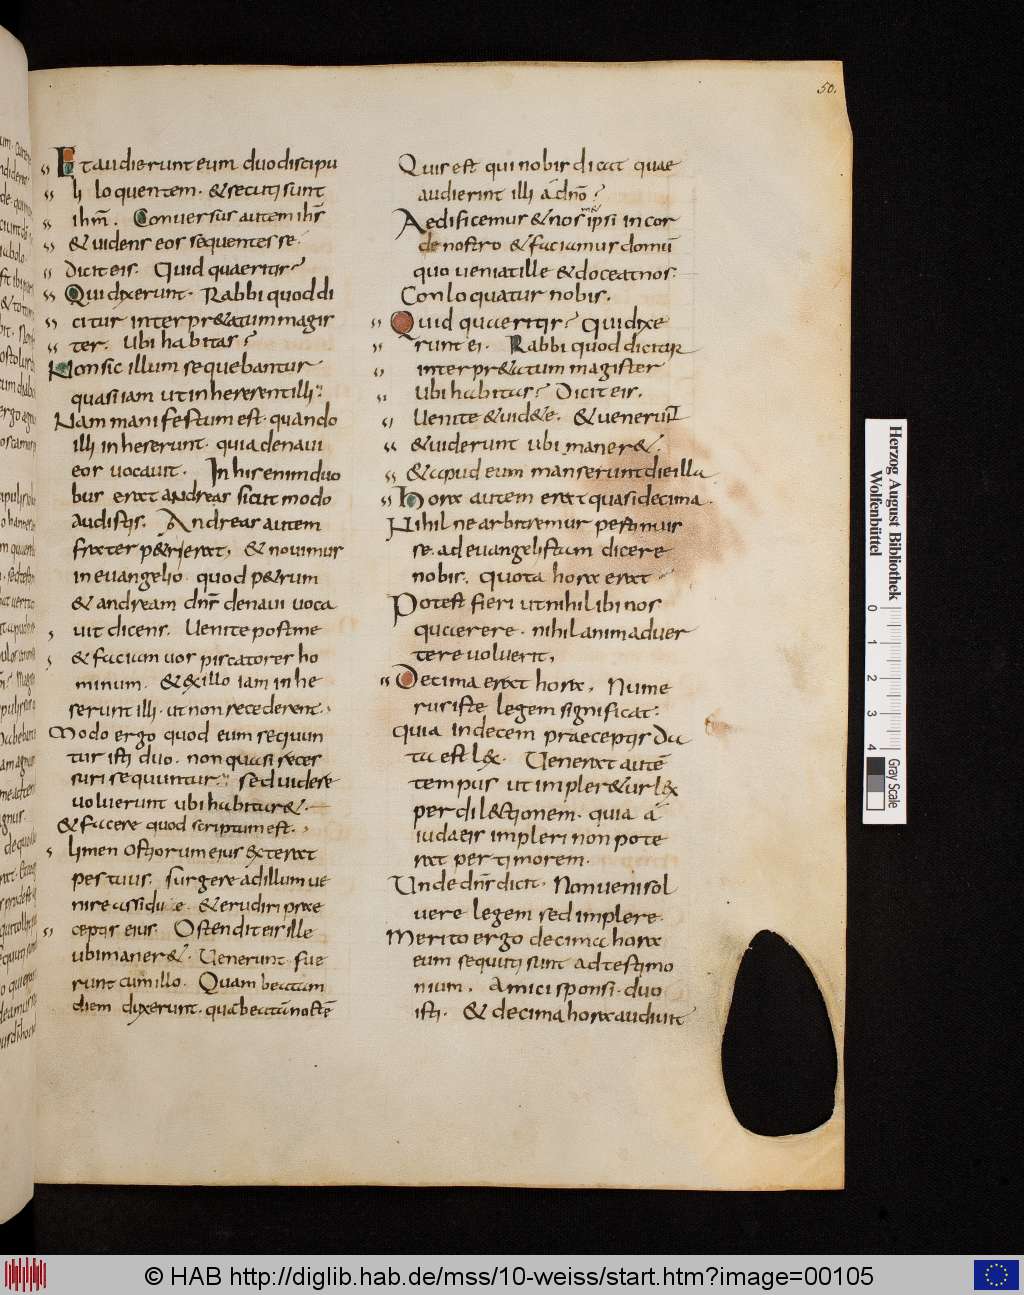 50.
Et audierunt eum duo discipu
li loquentem · & secuti sunt
ihm̄. Conuersus autem ih̄s
& uidens eos sequentes se·
Dicit eis. Quid quaeritis?
Qui dixerunt· Rabbi quod di
citur interpr&atum magis
ter. Ubi habitas?
Non sic illum sequebantur
quasi iam ut inhererent illi·
Nam manifestum est· quando
illi inheserunt· quia de naui
eos uocauit. In his enim duo
bus erat andreas sicut modo
audistis. Andreas autem
frater p&ri erat, & nouimus
in euangelio· quod p&rum
& andream dn̄s de naui uoca
uit dicens. Uenite post me
& faciam uos piscatores ho
minum. & ex illo iam inhe
serunt illi· ut non recederent.
Modo ergo quod eum sequun
tur isti duo· non quasi reces
suri sequuntur. sed uidere
uoluerunt ubi habitar&·
& facere quod scriptum est.
limen ostiorum eius exterat
pes tuus. surgere ad illum ue
nire assidue· & erudiri prae
ceptis eius. Ostendit eis ille
ubi maner&· Uenerunt · fue
runt cum illo. Quam beatum
diem duxerunt· quā beatā noctē
Quis est qui nobis dicat quae
audierint illi ā dn̄o?
Aedificemus & nos ipsi in cor
de nostro & faciamus domū
quo ueniat ille & doceat nos·
Conloquatur nobis.
Quid quaeritis? Qui dixe
runt ei. Rabbi quod dicitur
interpr&atum magister
Ubi habitas? Dicit eis.
Uenite & uid&e. & uenerunt
& uiderunt ubi maner&.
& apud eum manserunt die illa
Hora autem erat quasi decima.
Nihil ne arbitremur pertinuis
se. ad euangelistam dicere
nobis. quota hora erat
Potest fieri ut nihil ibi nos
quaerere· nihil animaduer
tere uoluerit,
Decima erat hora, Nume
rus iste legem significat·
quia in decem praeceptis da
ta est lex. Uenerat autē
tempus ut impler&ur lex
per dil&tionem· quia ā
iudaeis impleri non pote
rat per timorem·
Unde dn̄s dicit· Non ueni sol
uere legem sed implere·
Merito ergo decima hora
eum secuti sunt ad testimo
nium. Amici sponsi· duo
isti. & decima hora audiuit
Herzog August Bibliothek
Wolfenbüttel
0 1 2 3 4
Gray Scale
© HAB http://diglib.hab.de/mss/10-weiss/start.htm?image=00105